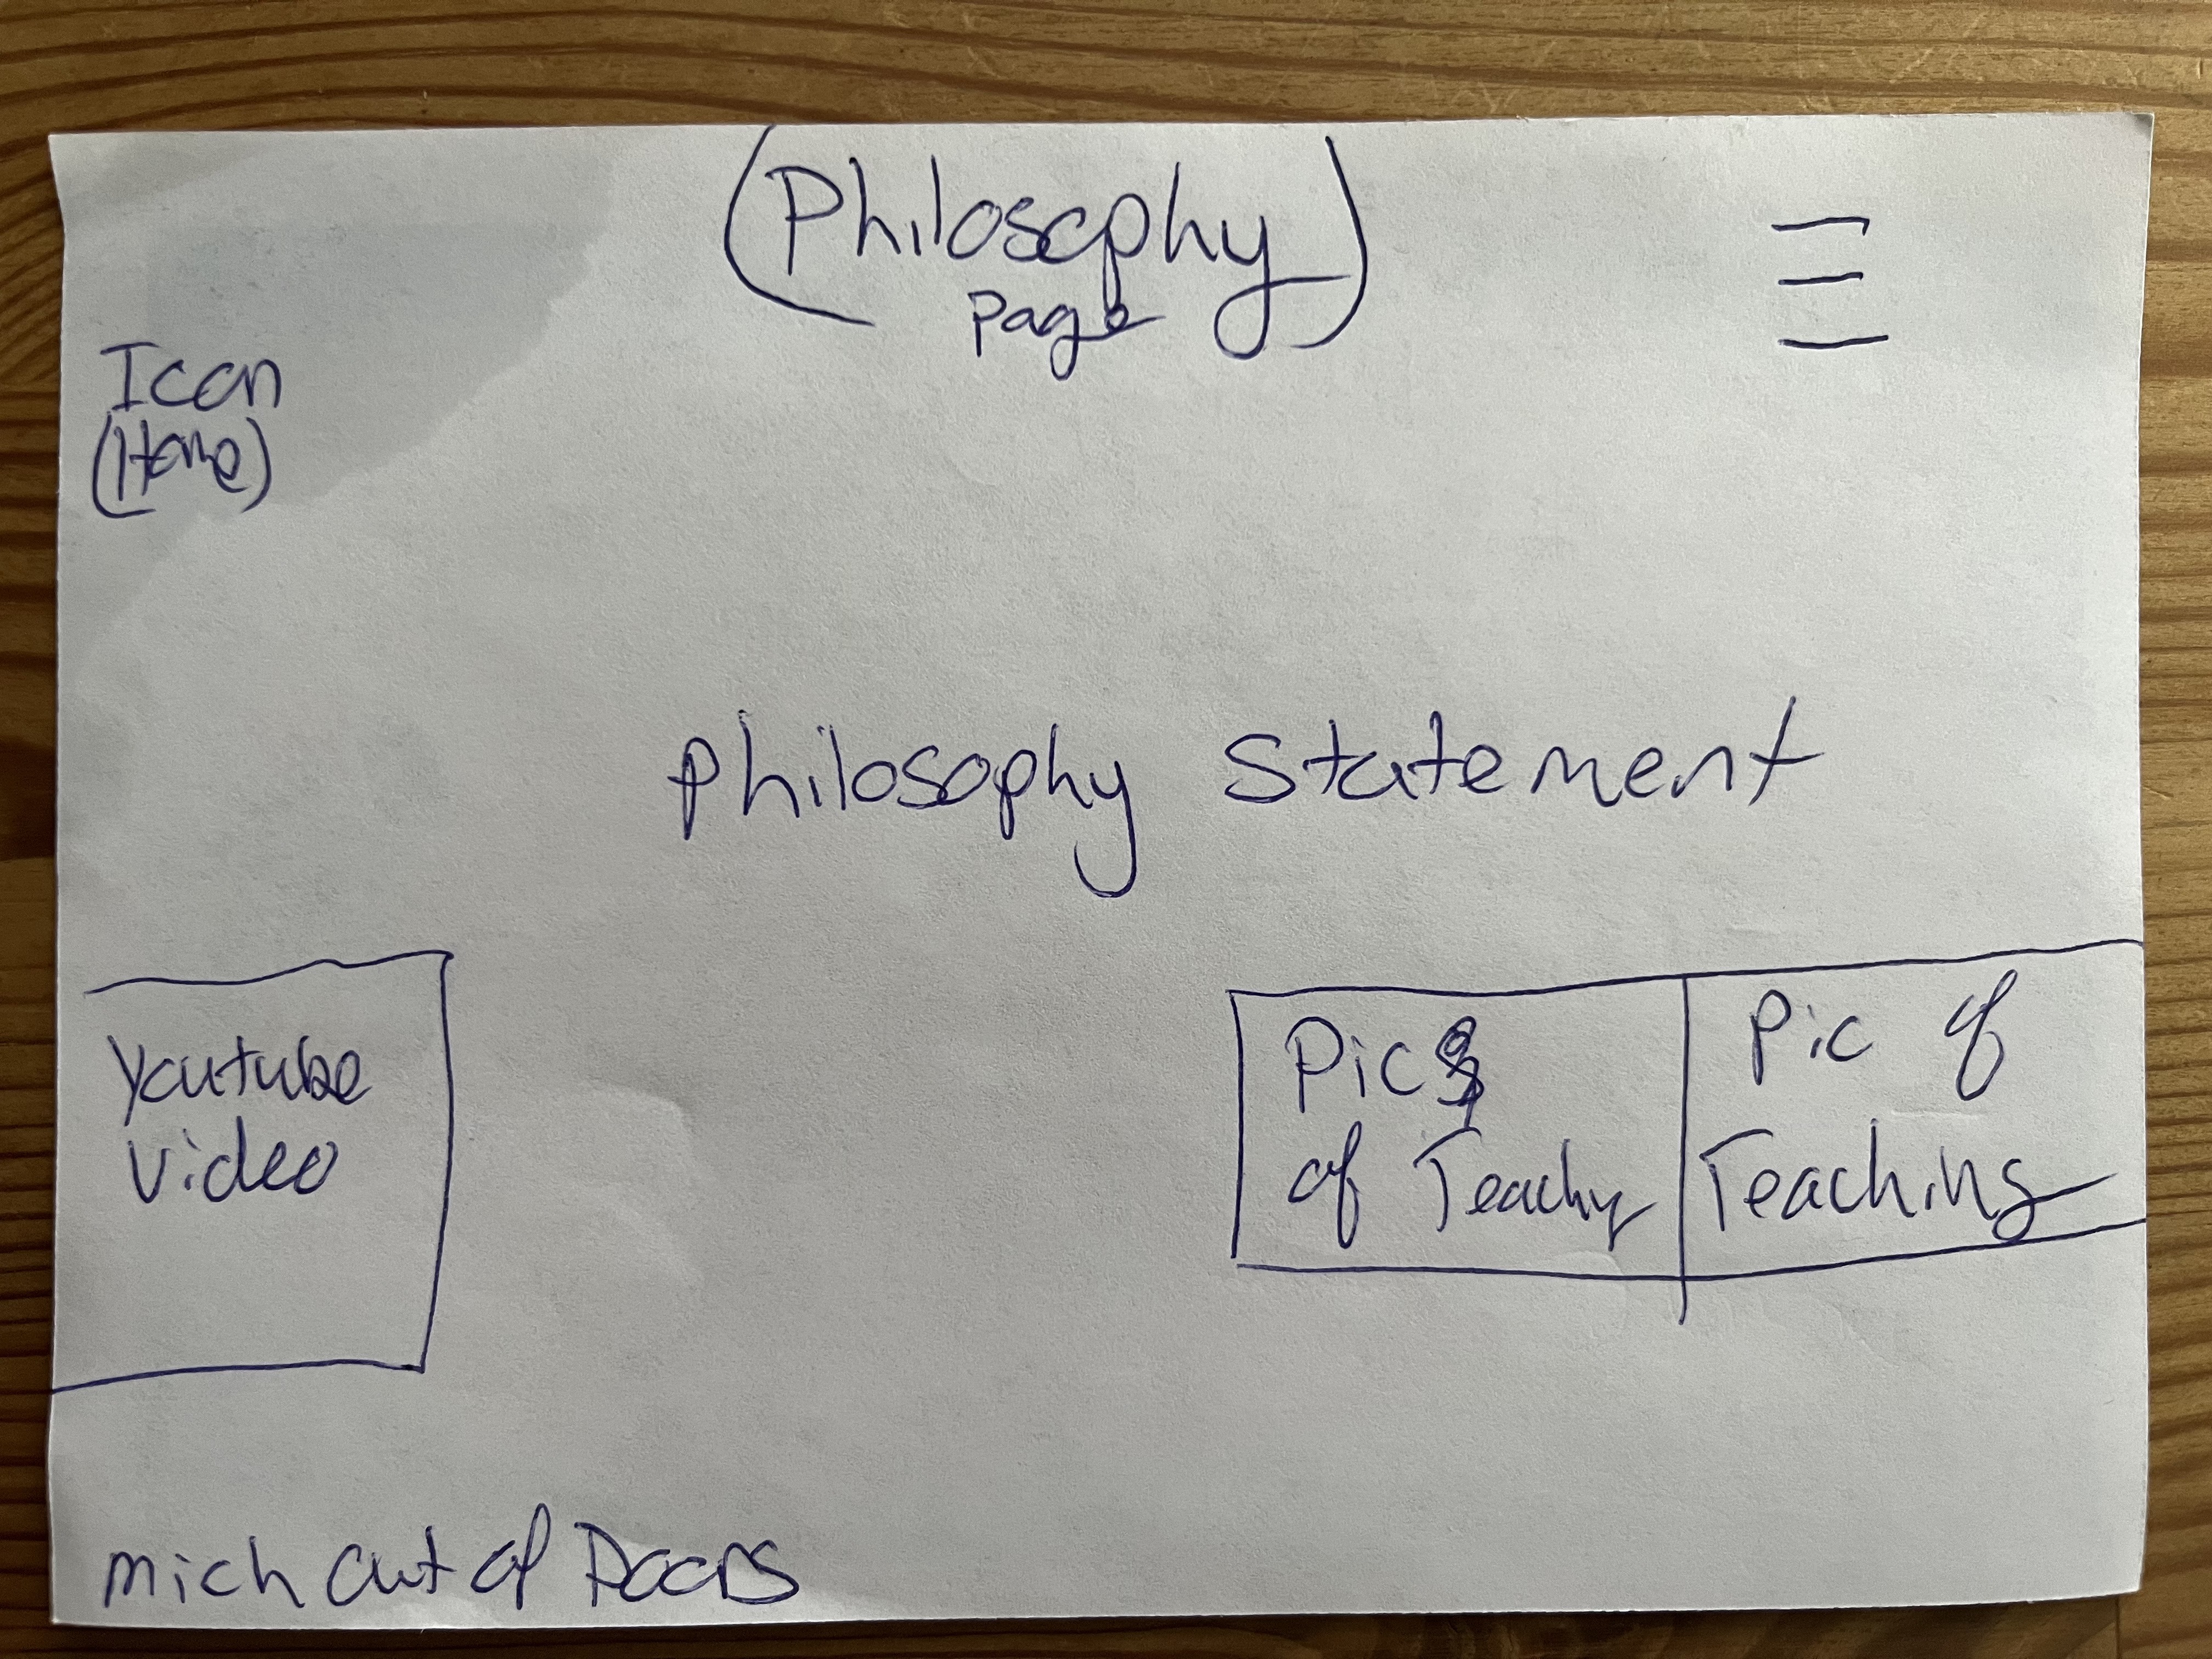 (Philosophy)
Page
Icon
(Home)
Philosophy Statement
Youtube
Video
Pics
of Teachg
Pic of
Teaching
Mich Out of Doors